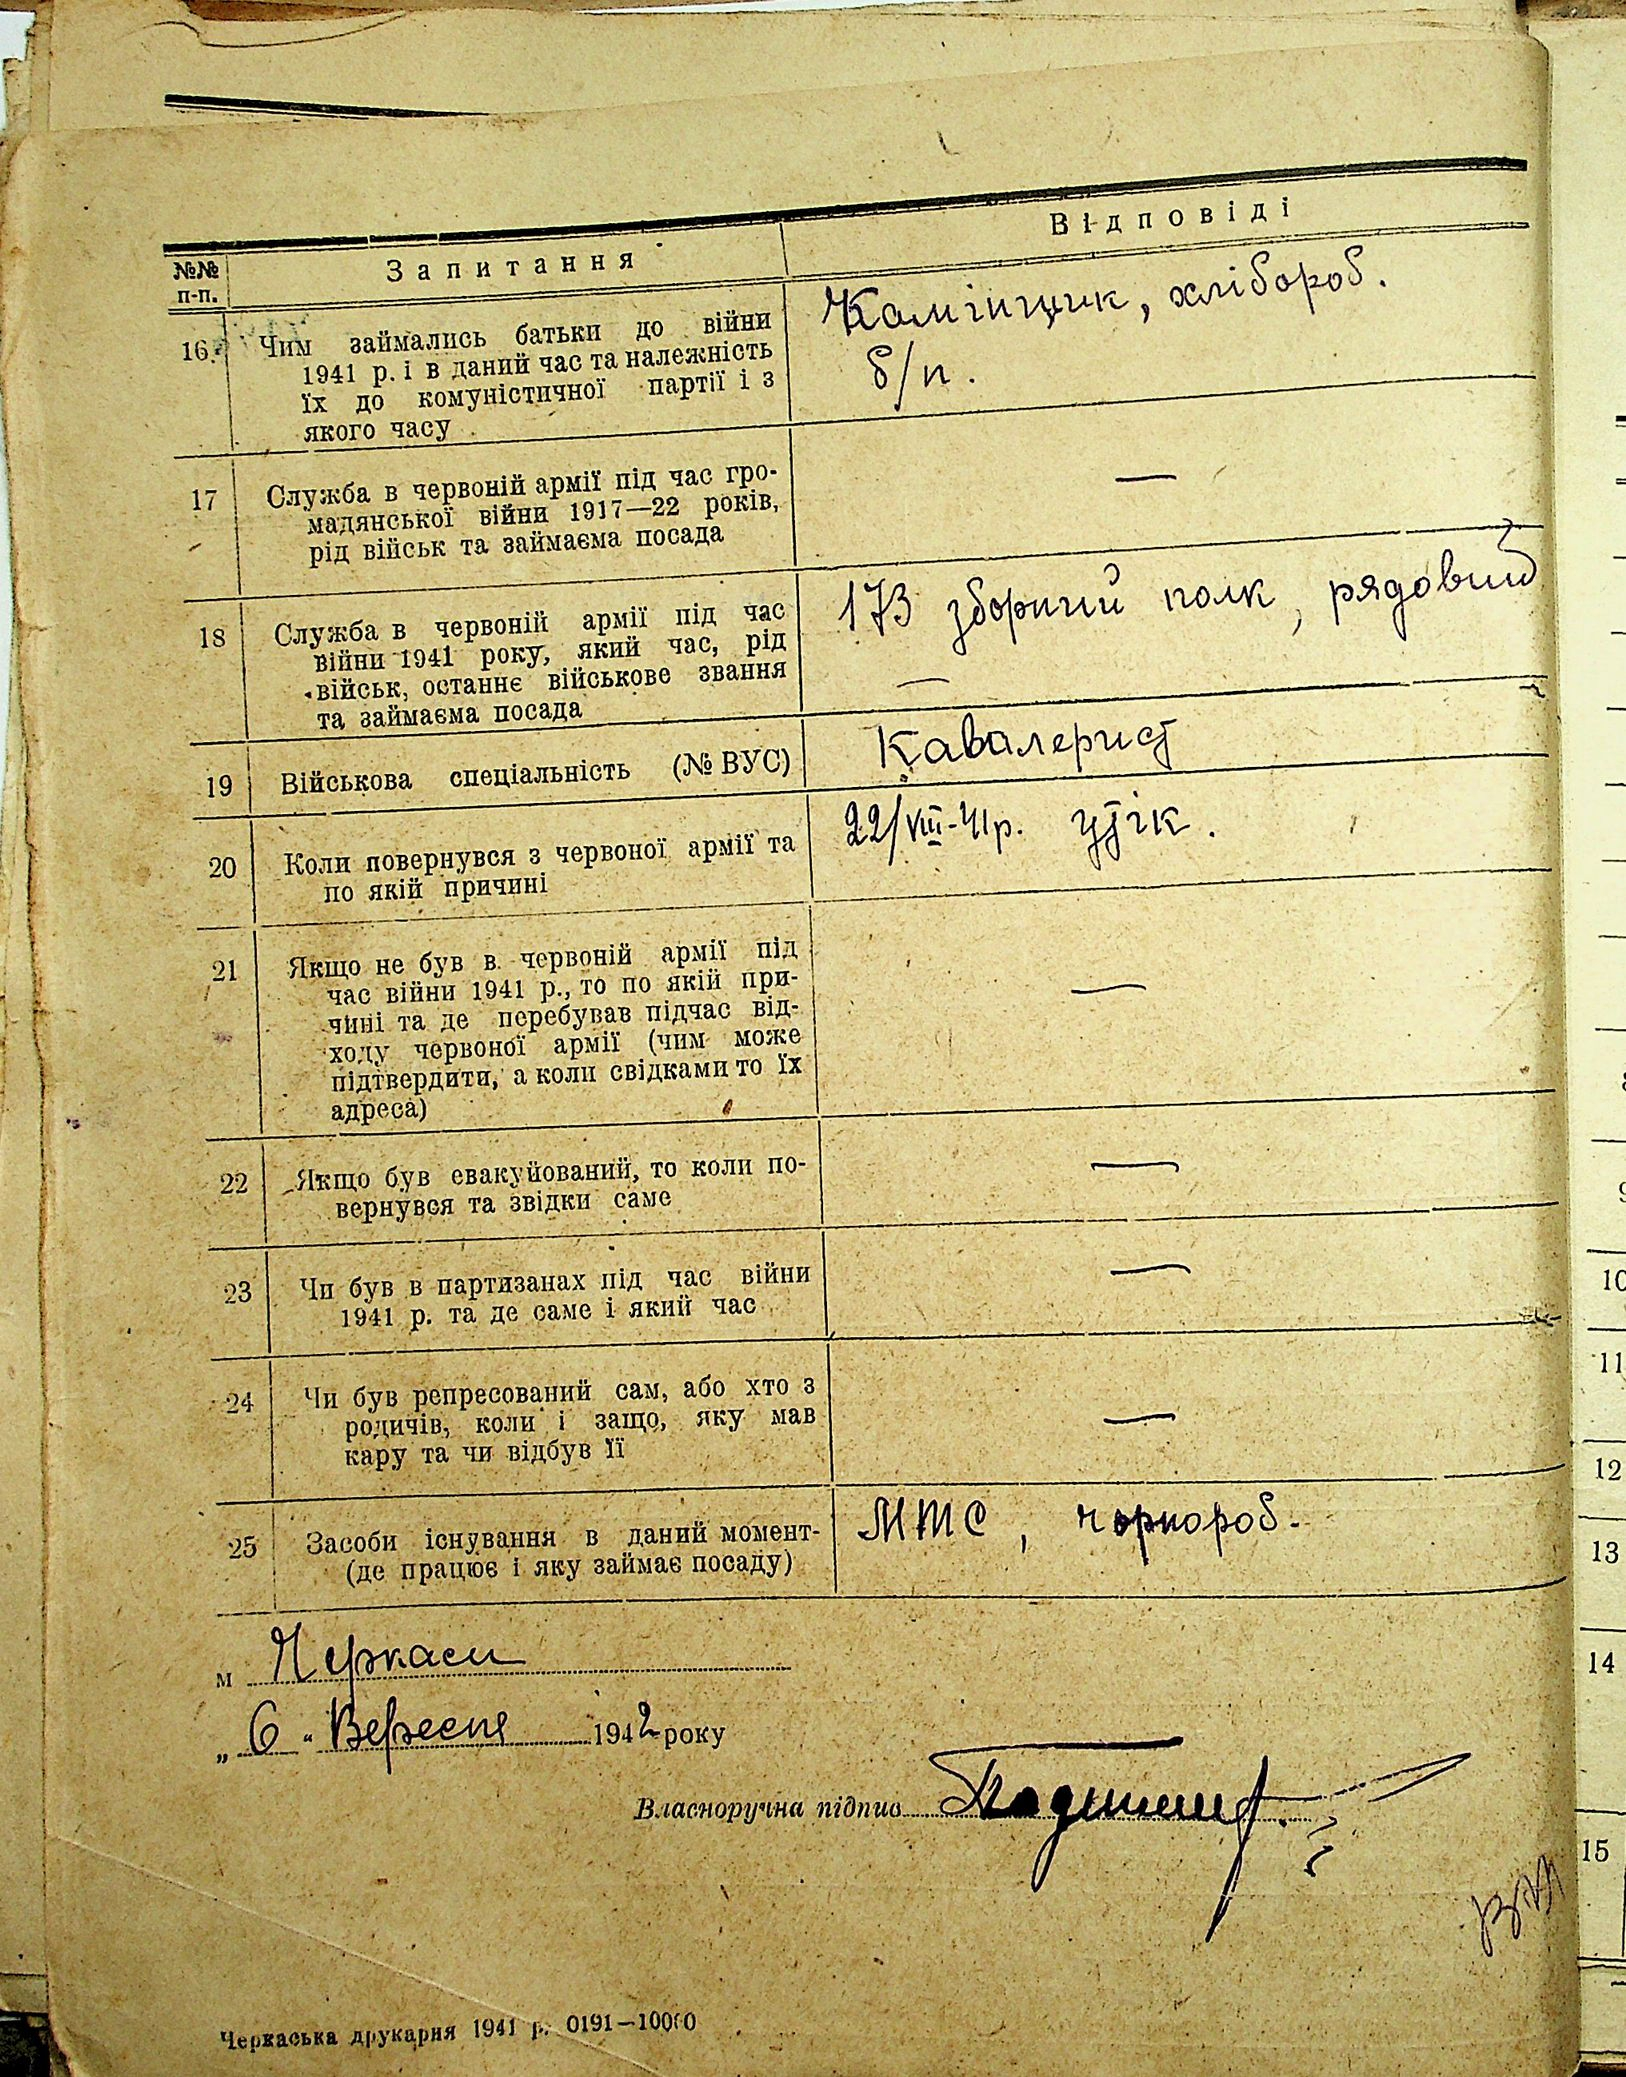 №№
п-п.
Запитання
Відповіді
16.
Чим займались батьки до війни
1941 р. і в даний час та належність
їх до комуністичної партії і з
якого часу
Камінщик, хлібороб.
б/п.
17
Служба в червоній армії під час гро-
мадянської війни 1917—22 років,
рід військ та займаєма посада
—
18
Служба в червоній армії під час
війни 1941 року, який час, рід
військ, останнє військове звання
та займаєма посада
173 зборний полк, рядовий
—
19
Військова спеціальність (№ ВУС)
Кавалерист
20
Коли повернувся з червоної армії та
по якій причині
22/VIII-41р. утік.
21
Якщо не був в червоній армії під
час війни 1941 р., то по якій при-
чині та де перебував підчас від-
ходу червоної армії (чим може
підтвердити, а коли свідками то їх
адреса)
—
22
Якщо був евакуйований, то коли по-
вернувся та звідки саме
—
23
Чи був в партизанах під час війни
1941 р. та де саме і який час
—
24
Чи був репресований сам, або хто з
родичів, коли і защо, яку мав
кару та чи відбув її
—
25
Засоби існування в даний момент-
(де працює і яку займає посаду)
МТС, чорнороб.
м Черкаси
„ 6 " Вересня 1942 року
Власноручна підпис
Черкаська друкарня 1941 р. 0191—10000
10
11
12
13
14
15